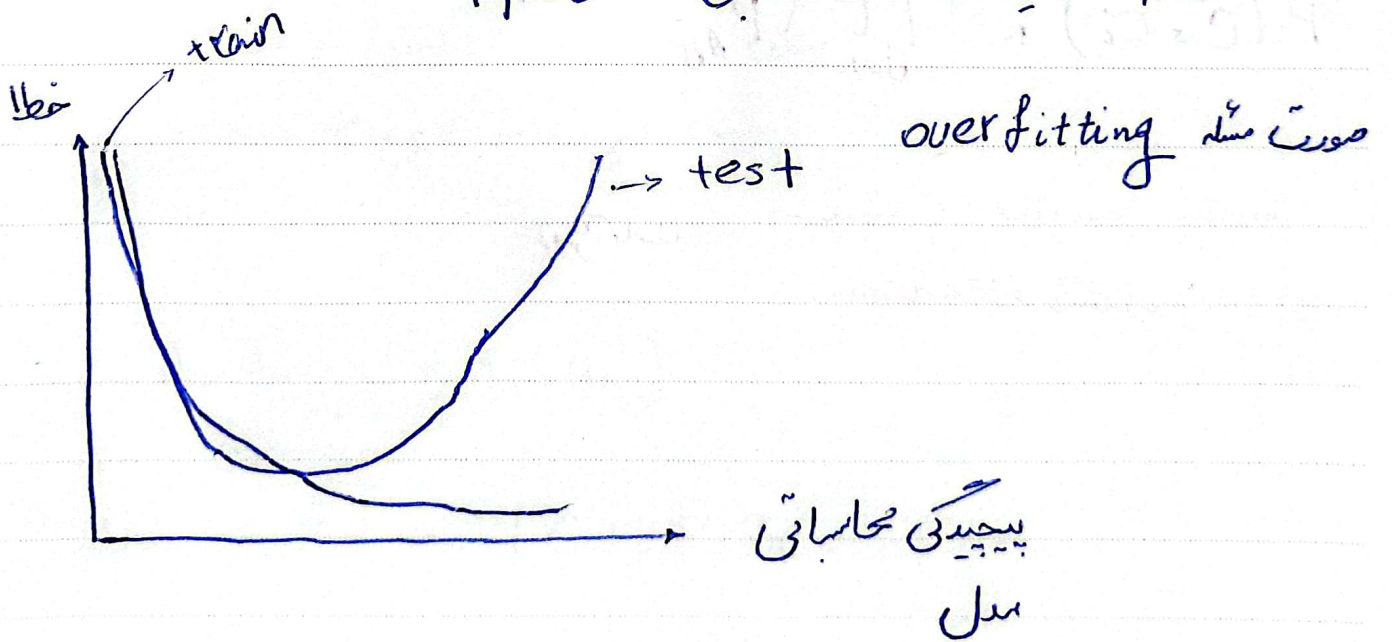 train
خطا
صورت مسئله overfitting
test
پیچیدگی محاسباتی
مدل